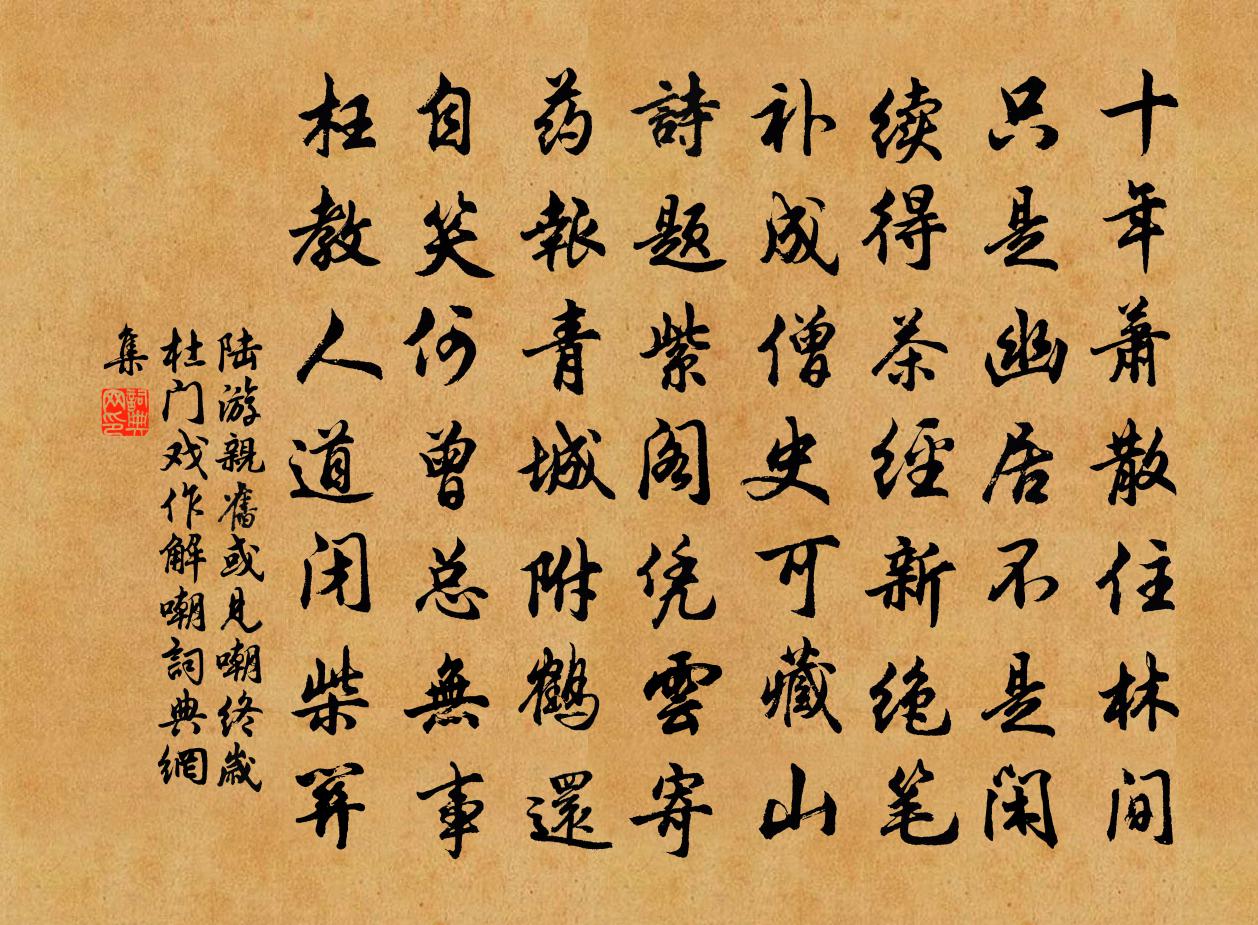 十年萧散住林间
只是幽居不是闲
续得茶經新绝笔
补成僧史可藏山
詩题紫阁凭雲寄
药報青城附鹤還
自笑何曾总無事
枉教人道闭柴关
陆游親舊或見嘲终歲
杜门戏作解嘲詞典網
集
詞典网印